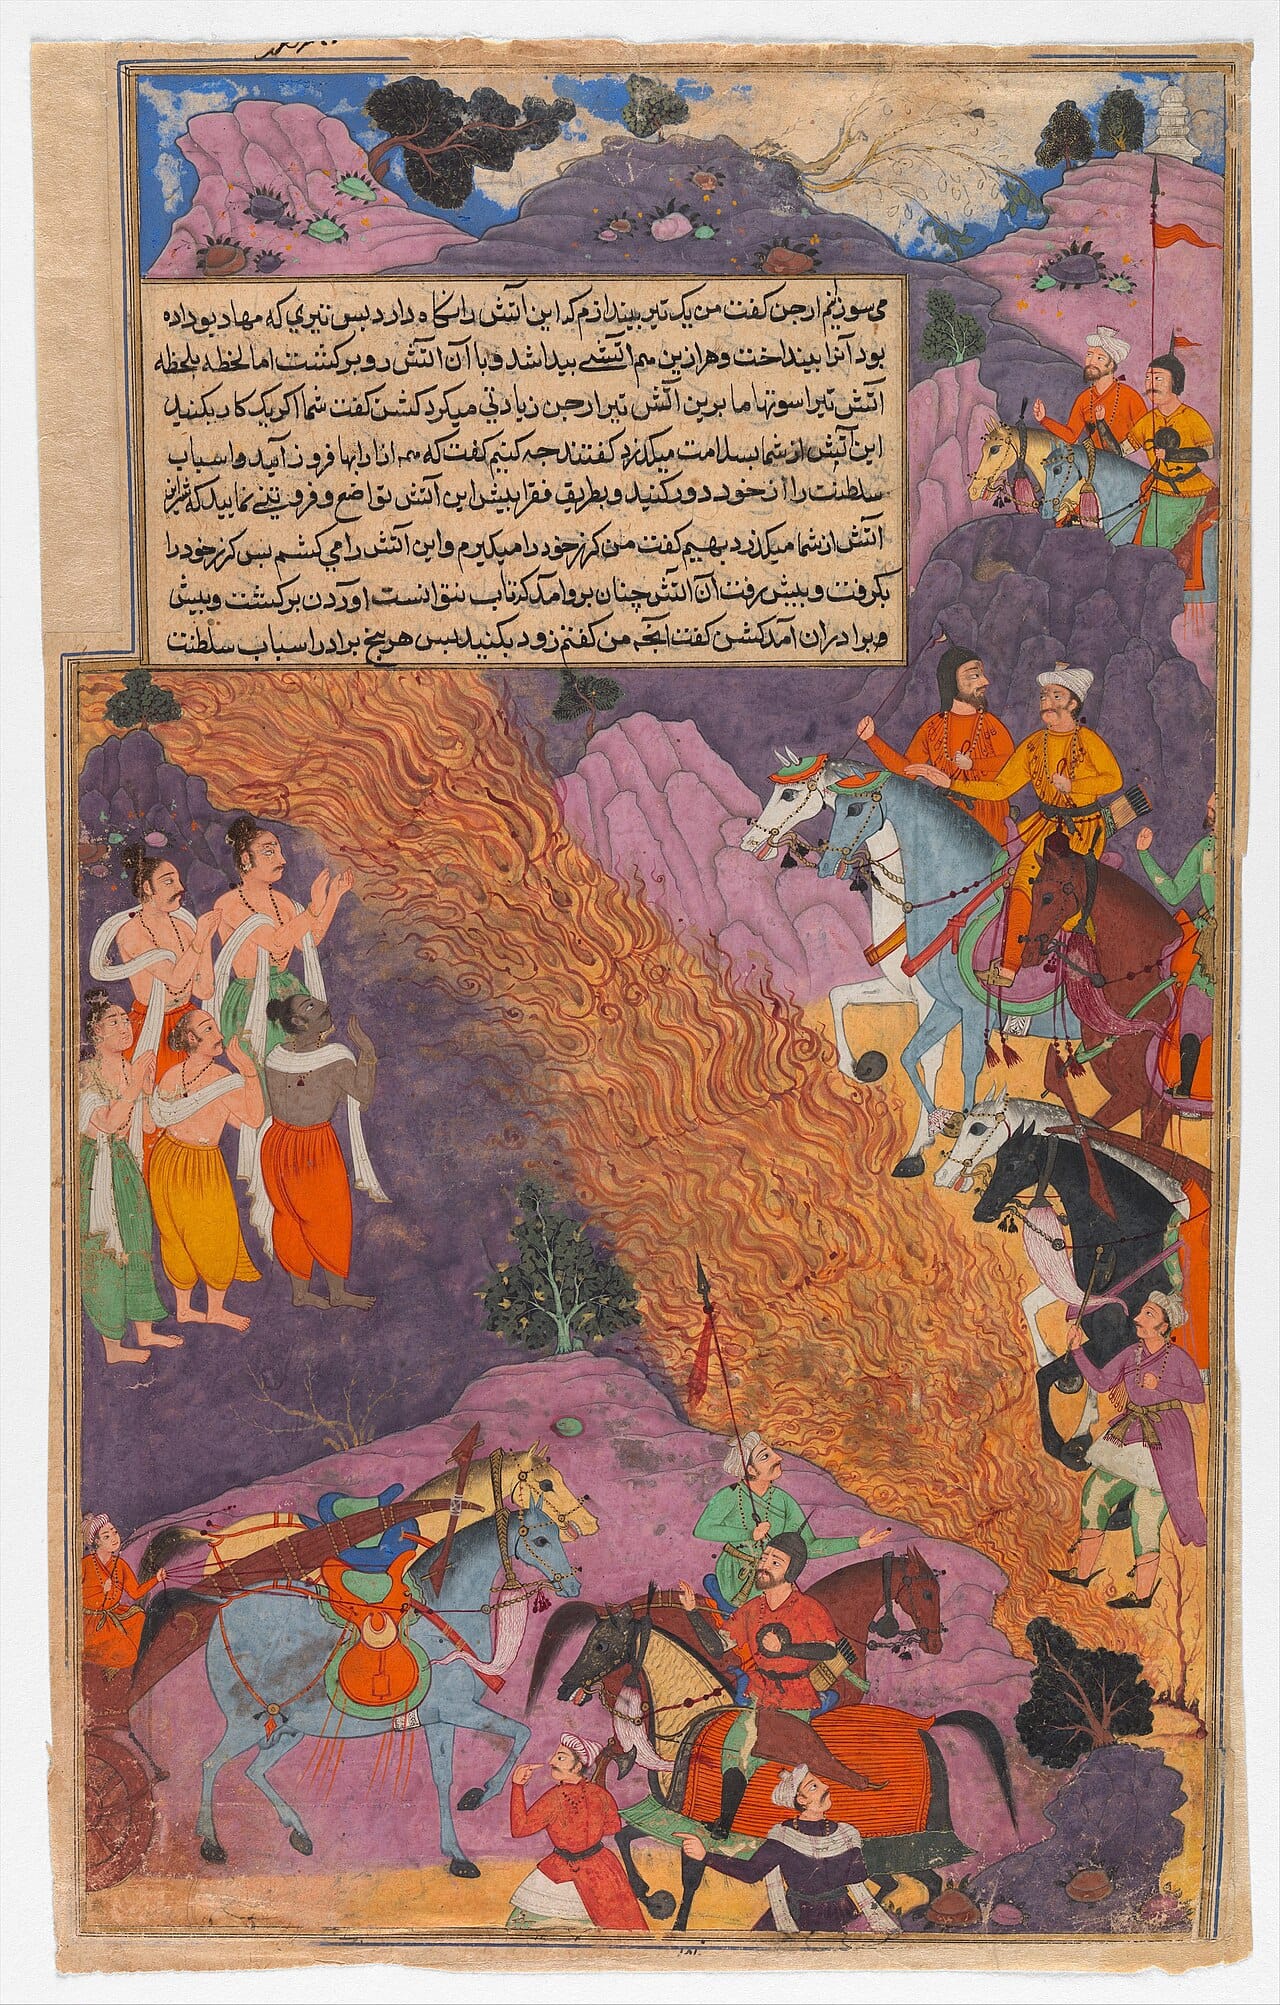 می سوزیم ارجن گفت من یک تیر بیندازم که این آتش را نگاه دارد بس تیری که مهادیو داده
بود آنرا بینداخت و هر ازین هم آتشی بیدا شد و با آن آتش روبرکشت اما لحظه بلحظه
آتش تیر اسوتهاما برین آتش تیر ارجن زیادتی میکرد کشن گفت شما اکر یک کار بکنید
این آتش از شما بسلامت میکذرد گفتند چه کنیم گفت که همه از ارابها فرود آیید و اسباب
سلطنت را از خود دور کنید و بطریق فقرا بیش این آتش تواضع و فروتنی نمایید که شر این
آتش از شما میکذرد بهیم گفت من کرز خود را میکیرم و این آتش را می کشم بس کرز خود را
بکرفت و بیش رفت آن آتش چنان برو آمد که تاب نتوانست آوردن برکشت و بیش
برادران آمد کشن گفت آنچه من گفتم زود بکنید بس هر پنج برادر اسباب سلطنت
۱۸۱